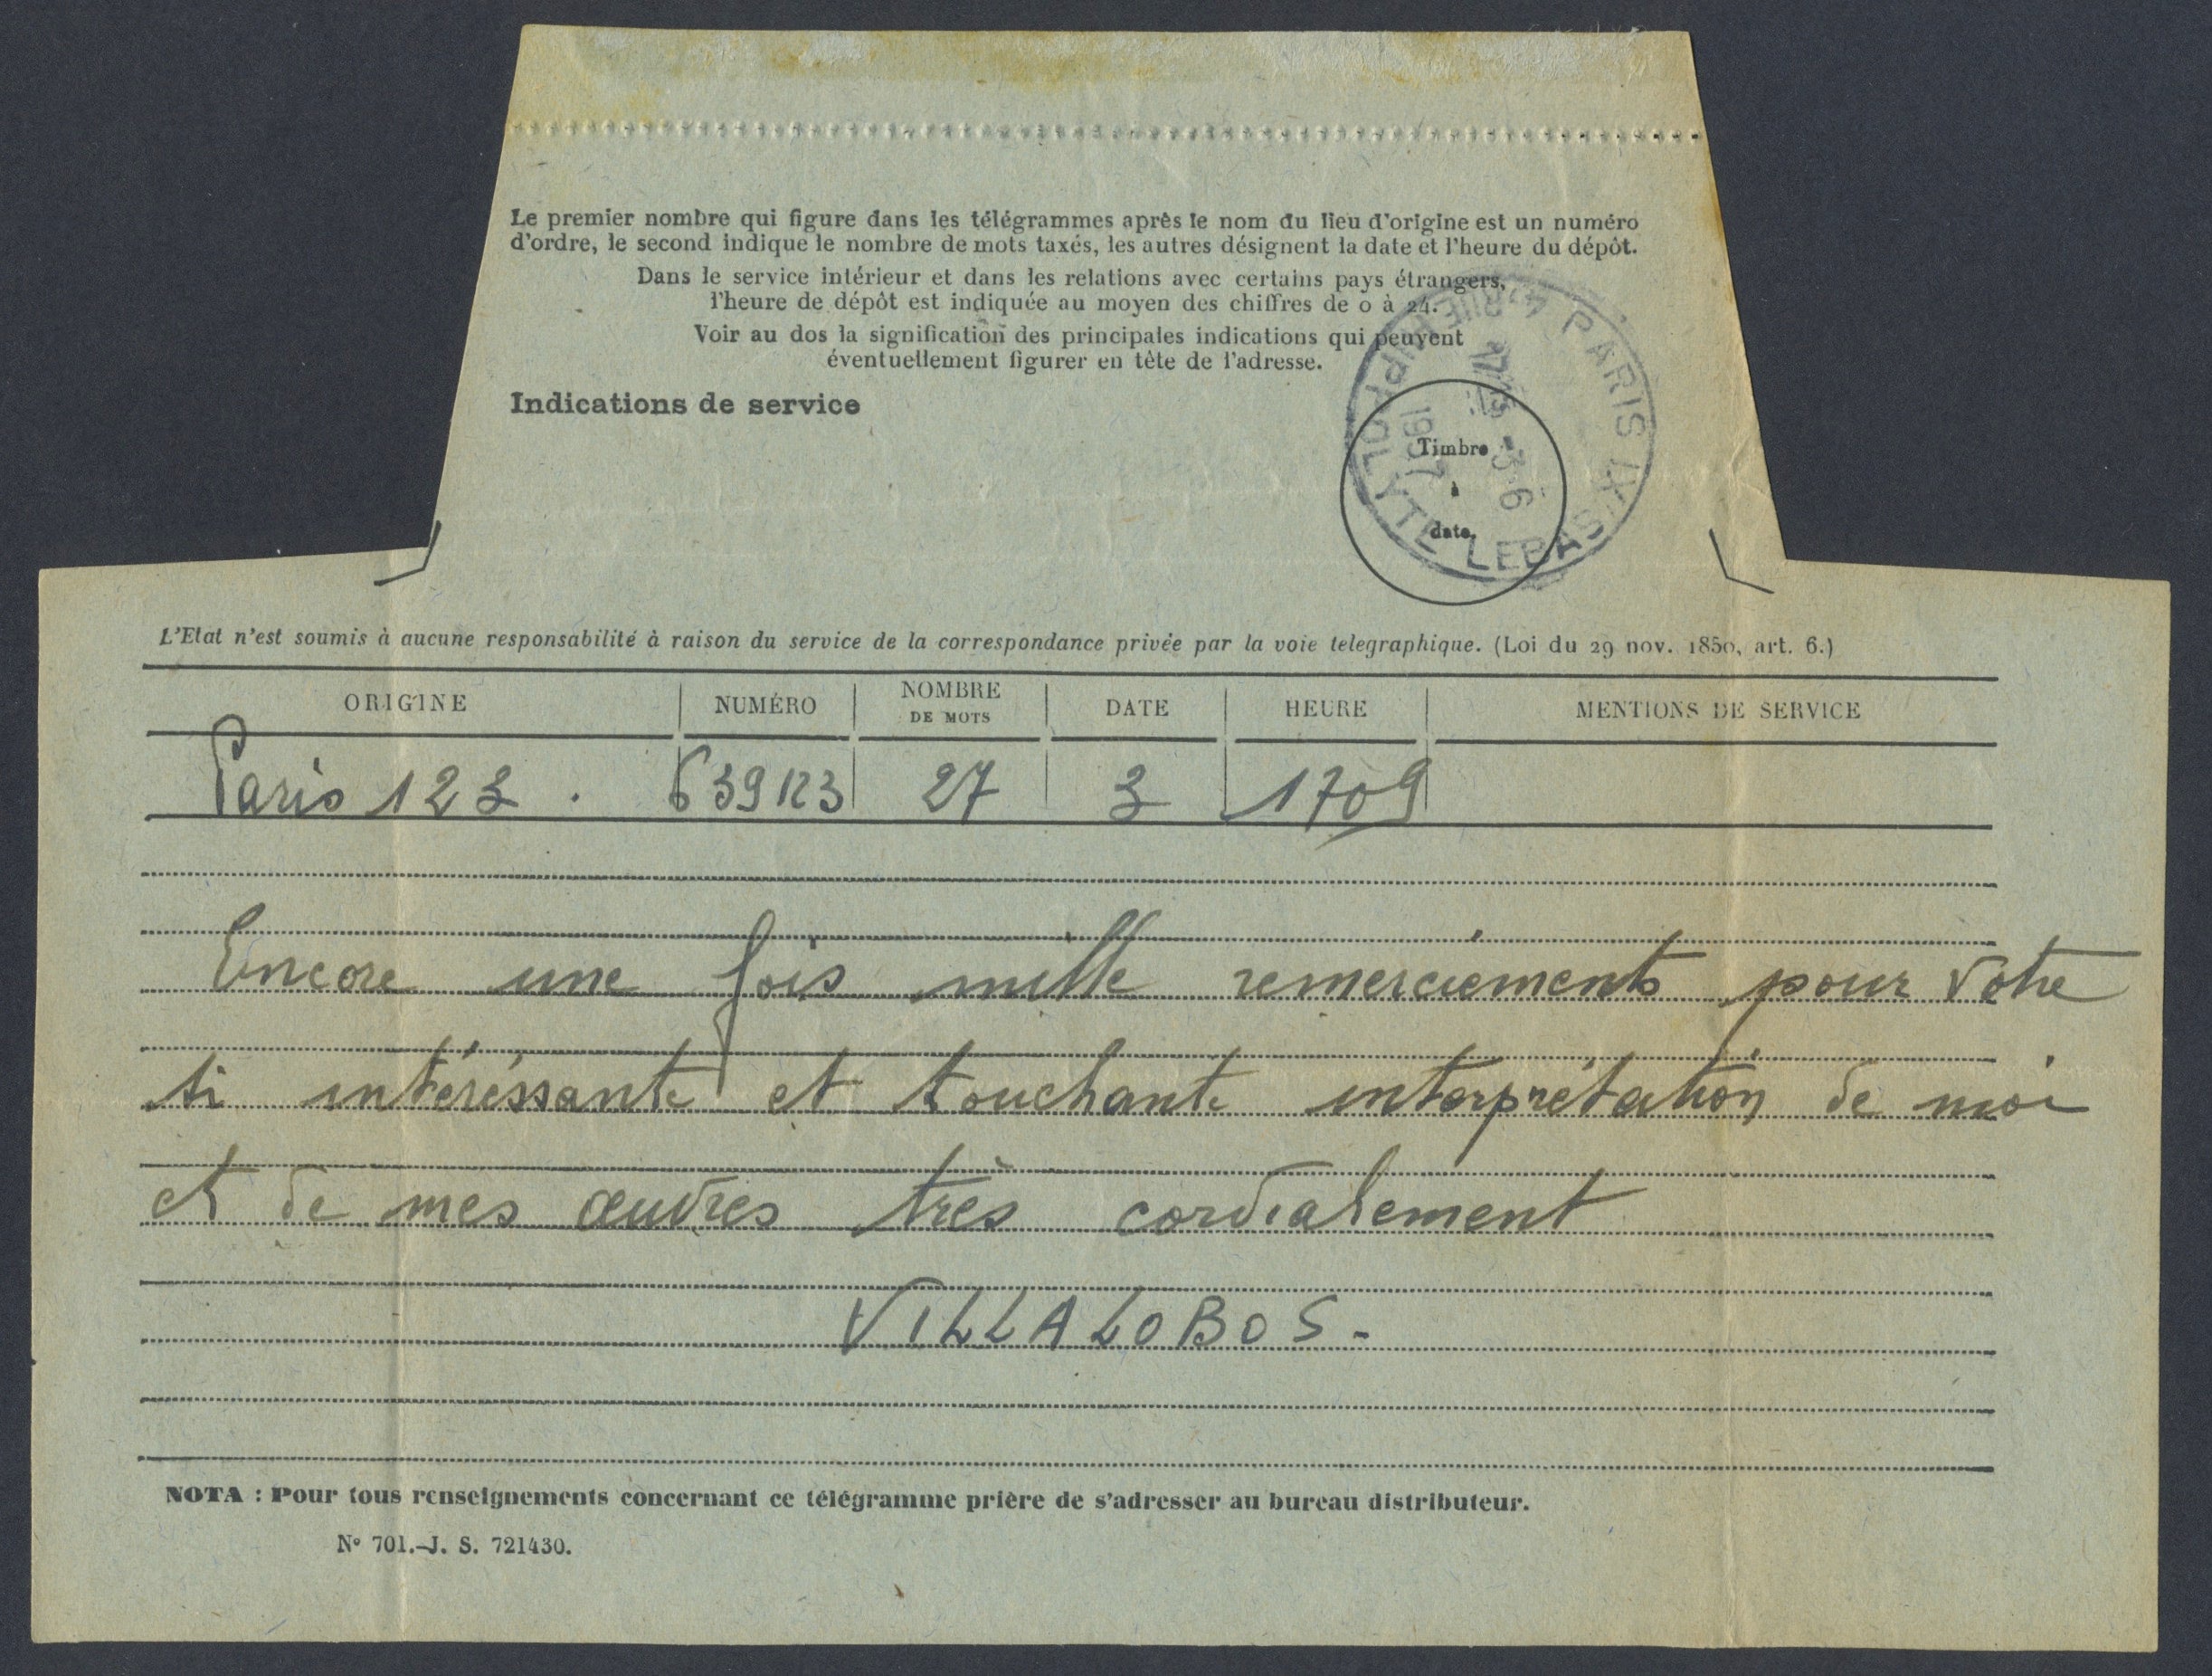 Le premier nombre qui figure dans les télégrammes après le nom du lieu d'origine est un numéro
d'ordre, le second indique le nombre de mots taxés, les autres désignent la date et l'heure du dépôt.
Dans le service intérieur et dans les relations avec certains pays étrangers,
l'heure de dépôt est indiquée au moyen des chiffres de 0 à 24.
Voir au dos la signification des principales indications qui peuvent
éventuellement figurer en tête de l'adresse.
Indications de service
PARIS IX
HIPPOLYTE LEBAS
-3-6
1957
Timbre
à
date.
L'Etat n'est soumis à aucune responsabilité à raison du service de la correspondance privée par la voie telegraphique. (Loi du 29 nov. 1850, art. 6.)
ORIGINE NUMÉRO NOMBRE DE MOTS DATE HEURE MENTIONS DE SERVICE
Paris 123 . 639123 27 3 1709
Encore une fois mille remerciements pour votre
si intéréssante et touchante interprétation de moi
et de mes œuvres très cordialement
VILLALOBOS -
NOTA : Pour tous renseignements concernant ce télégramme prière de s'adresser au bureau distributeur.
N° 701.-J. S. 721430.